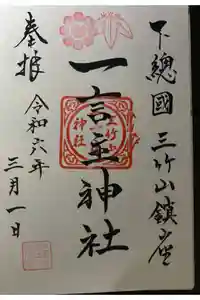 下總國 三竹山鎮座
一言主神社
奉拝
令和六年
三月一日